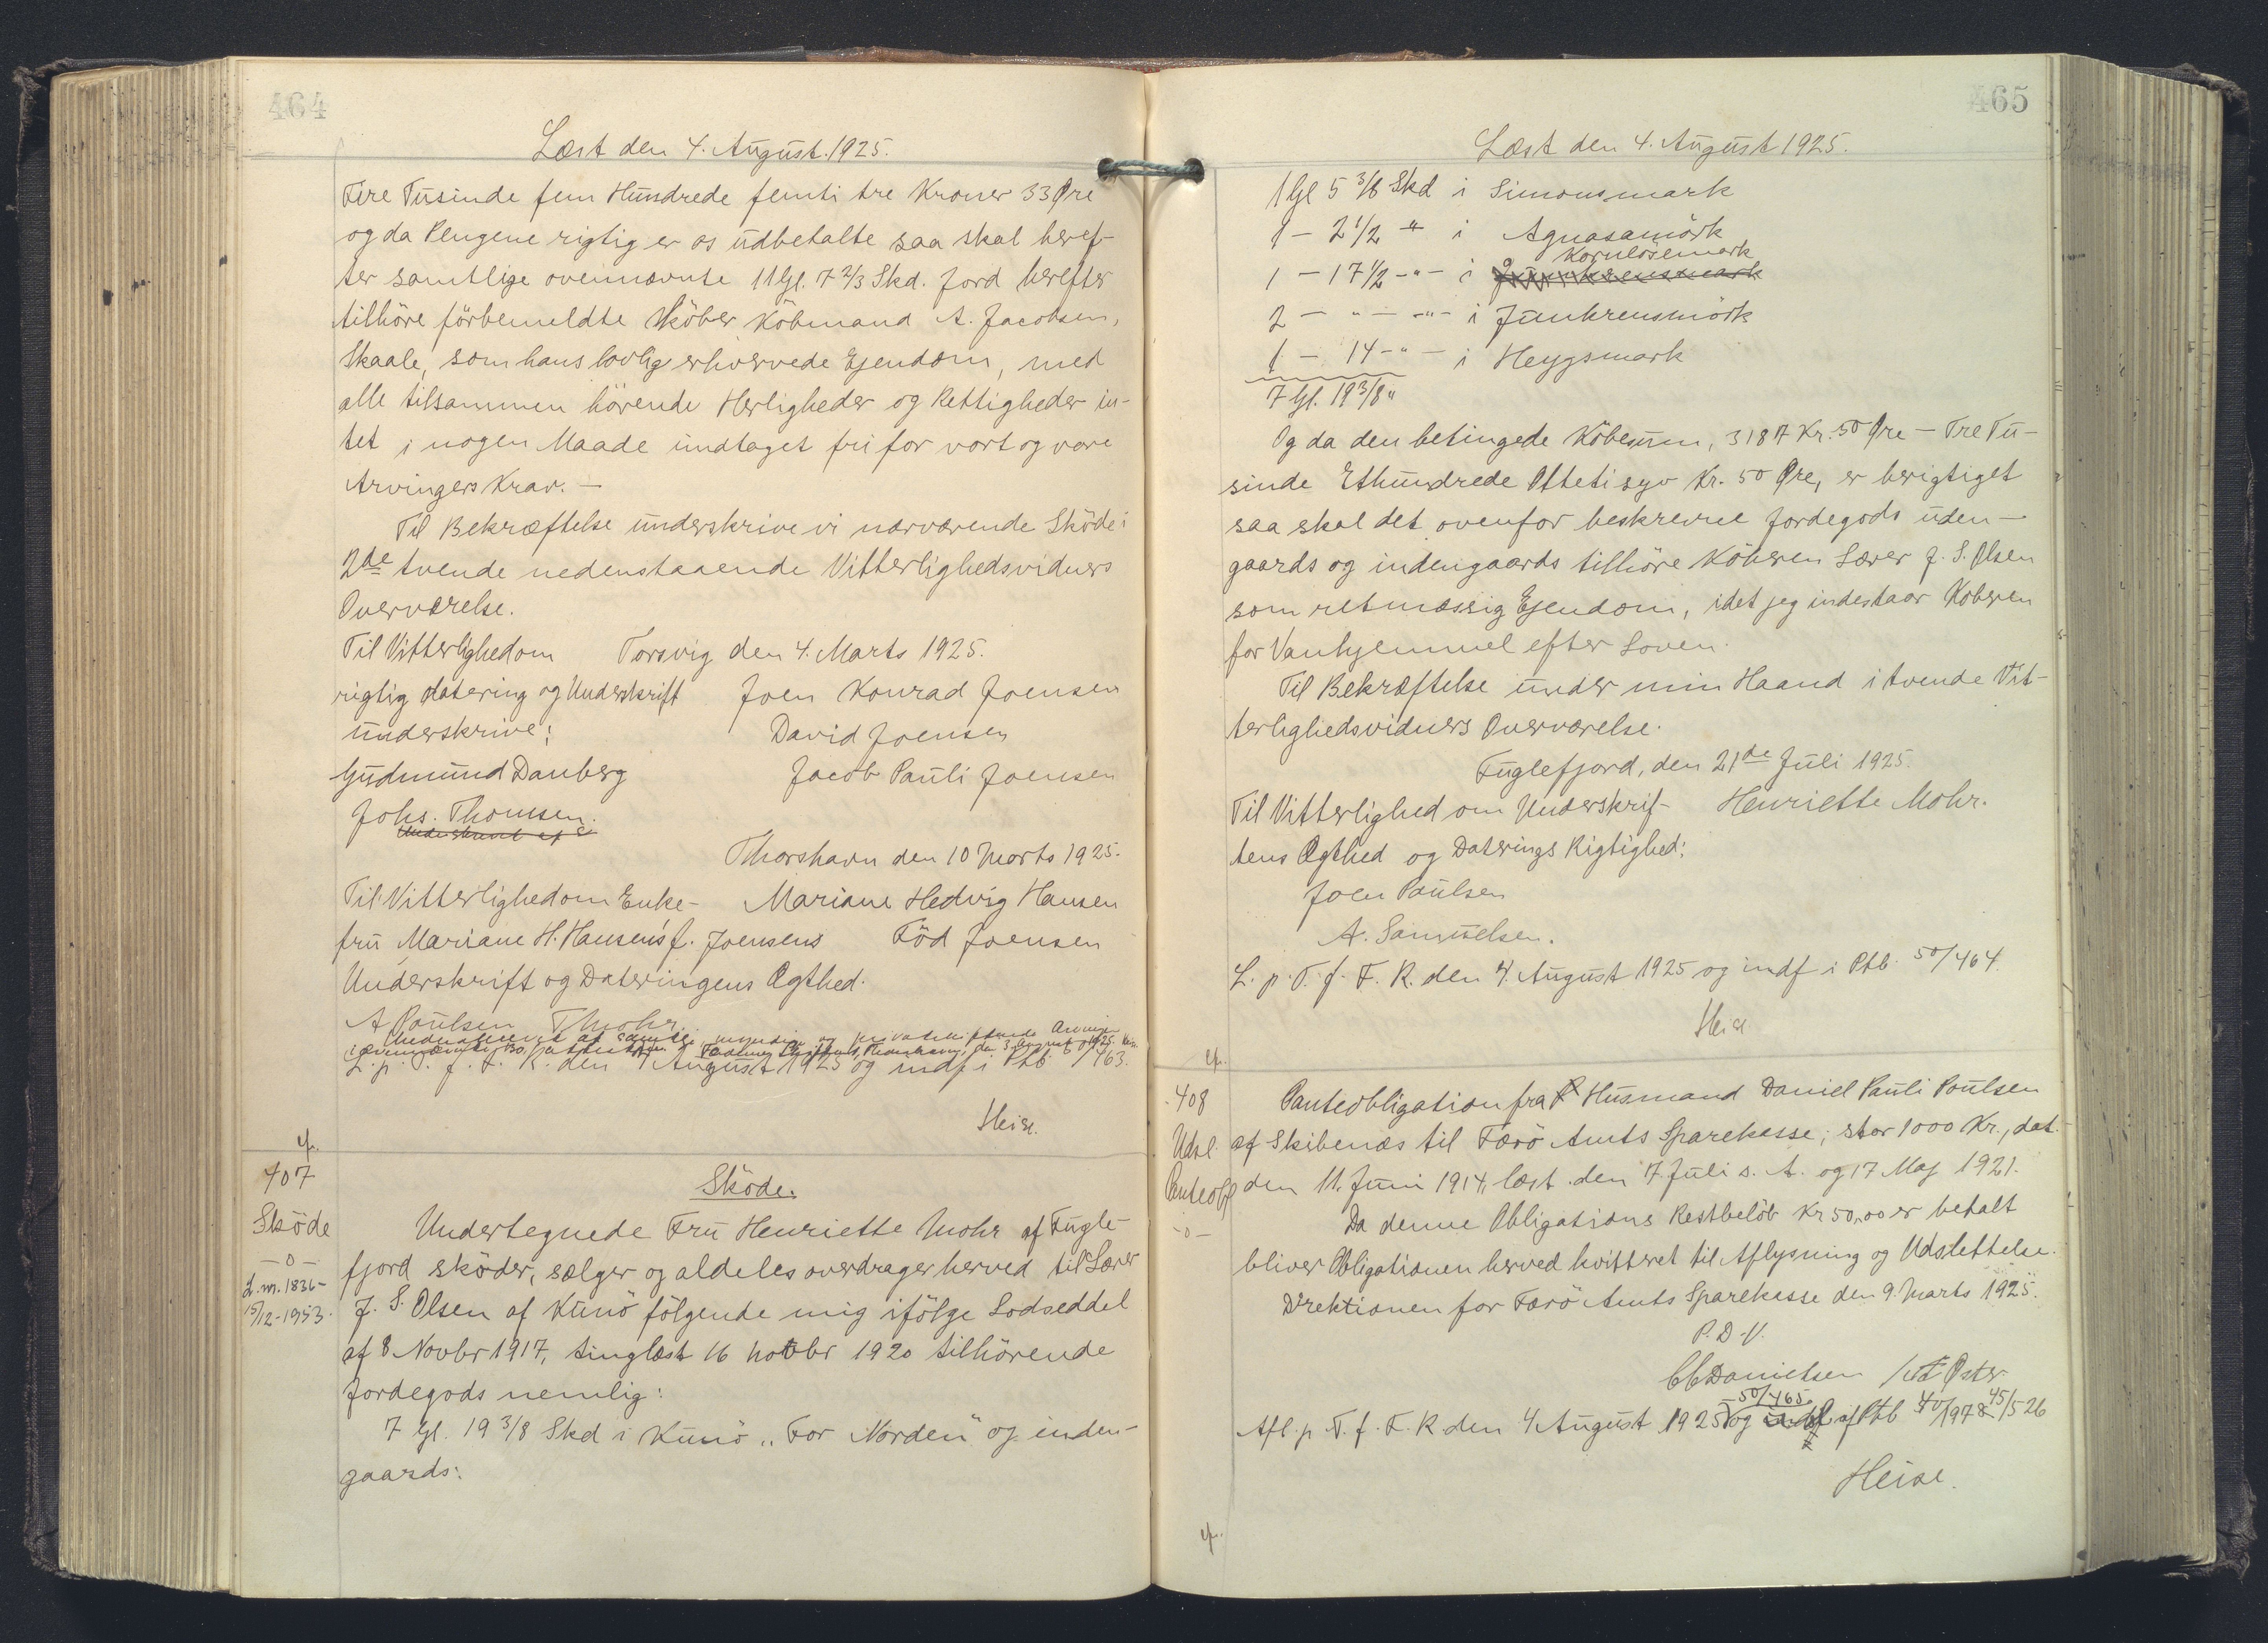 464
Læst den 4. August. 1925.
Fire Tusinde fem Hundrede femti tre Kroner 33 Øre
og da Pengene rigtig er os udbetalte saa skal heref-
ter samtlige ovennævnte 11 Gl. 7 2/3 Skd. Jord herefter
tilhöre förbemeldte Köber Köbmand A. Jacobsen,
Skaale, som hans lovlig erhvervede Ejendom, med
alle tilsammen hörende Herligheder og Rettigheder in-
tet i nogen Maade undtaget fri for vort og vore
Arvingers Krav. —
Til Bekræftelse underskrive vi nærværende Sköde i
2de tvende nedenstaaende Vitterlighedsvidners
Overværelse.
Til Vitterlighedom Torsvig den 4. Marts 1925.
rigtig datering og Underskrift Joen Konrad Joensen
underskrive: David Joensen
Gudmund Danberg Jacob Pauli Joensen
Johs. Thomsen.
Thorshavn den 10 Marts 1925.
Til Vitterlighedom Enke- Mariane Hedvig Hansen
fru Mariane H. Hansens f. Joensens Född Joensen
Underskrift og Dateringens Ægthed.
A Poulsen T. Mohr
Underskrevet af samtlige myndige og
L. p. T. f. F. R. den 4 August 1925 og indf i Ptb. 50/463.
Heise.
407
Sköde
— o —
L.nr. 1836-
15/12-1953.
Sköde.
Undertegnede Fru Henriette Mohr af Fugle-
fjord sköder, sælger og aldeles overdrager herved til Lærer
J. S. Olsen af Kunö fölgende mig ifölge Lodseddel
af 8 Novbr 1917, tinglæst 16 novbr 1920 tilhörende
Jordegods nemlig:
7 Gl. 19 3/8 Skd i Kunö „For Norden" og inden-
gaards:
465
Læst den 4. August 1925.
1 Gl 5 3/8 Skd i Simonsmark
1 — 2 1/2 " i Agnasamörk
Kornlösemark
1 — 17 1/2 -"- i Junkrensmark
2 — " — -"- i Junkrensmörk
1 — 14 -"- i Heygsmark
7 Gl. 19 3/8 "
Og da den betingede Köbesum, 3187 Kr. 50 Øre — Tre Tu-
sinde Ethundrede Ottetisyv Kr. 50 Øre, er berigtiget
saa skal det ovenfor beskrevne Jordegods uden-
gaards og indengaards tilhöre Köberen Lærer J. S. Olsen
som retmæssig Ejendom, idet jeg indestaar Køberen
for Vanhjemmel efter Loven.
Til Bekræftelse under min Haand i tvende Vit-
terlighedsvidners Overværelse.
Fuglefjord, den 21de Juli 1925.
Til Vitterlighed om Underskrif- Henriette Mohr.
tens Ægthed og Daterings Rigtighed:
Joen Poulsen
A. Samuelsen.
L. p. T. f. F. R. den 4. August 1925 og indf i Ptb. 50/464.
Heise
408
Udsl.
Panteobl
- o -
Panteobligation fra Husmand Daniel Pauli Poulsen
af Skibenæs til Færö Amts Sparekasse, stor 1000 Kr., dat.
den 11. Juni 1914, læst den 7. Juli s. A. og 17 Maj 1921.
Da denne Obligations Restbelöb Kr 50,00 er betalt
bliver Obligationen herved kvitteret til Aflysning og Udslettelse.
Direktionen for Færö Amts Sparekasse den 9. Marts 1925.
P. D. V.
CC Danielsen / Øster
50/465
Afl. p. T. f. F. R. den 4 August 1925 og udsl. af Ptb 40/197 & 45/526
Heise.